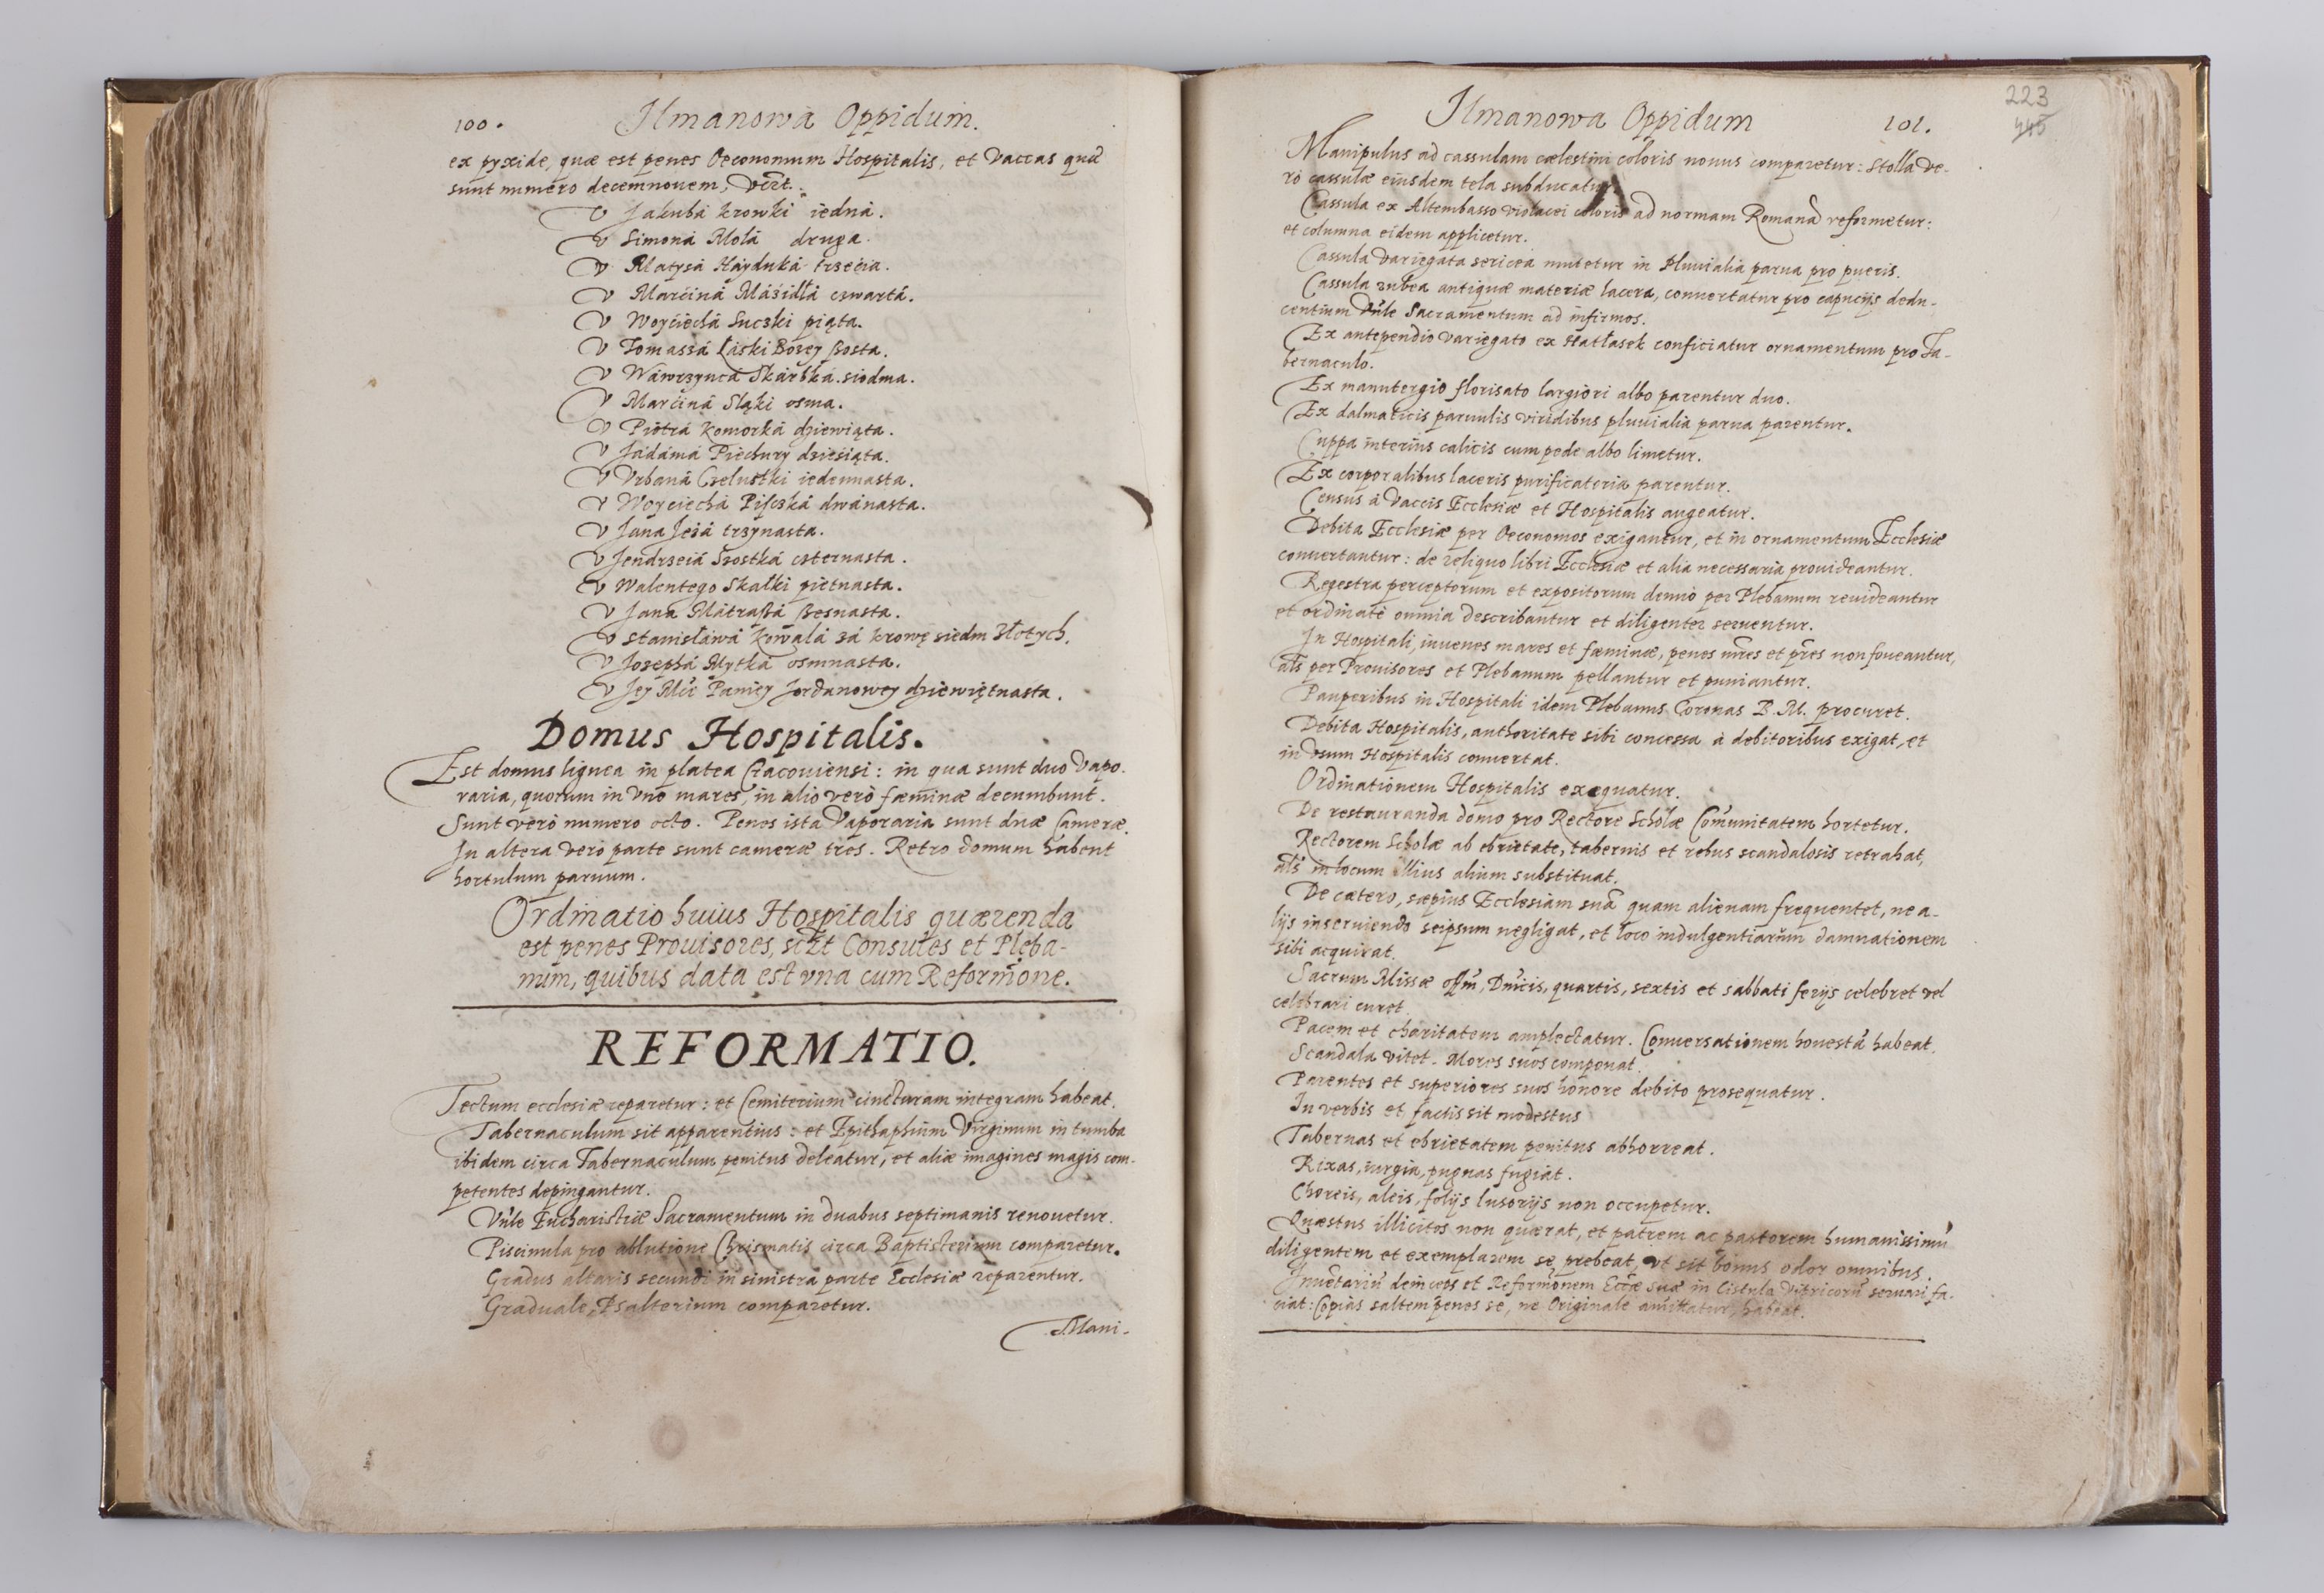 100. Ilmanowa Oppidum.
ex pyxide, quæ est penes Oeconomum Hospitalis, et Vaccas quæ
sunt numero decemnouem, Vczt.
V Jakubá krowki iedná.
V Simoná Molá druga.
V Matysá Háyduká trzećia.
V Marćiná Máśidłá czwartá.
V Woyćiechá Suczki piąta.
V Tomaszá Łáski Bozey szosta.
V Wáwrzyncá Skárbká siodma.
V Marćiná Sląki osma.
V Piotrá Komorká dziewiąta.
V Jádámá Piechury dziesiąta.
V Vrbaná Czelustki iedennasta.
V Woyciechá Pisczká dwánasta.
V Jana Jeżá trzynasta.
V Jendrzeiá Szostká czternasta.
V Walentego Skałki pietnasta.
V Jana Mátraszá szesnasta.
V Stanisławá Kowalá zá krowę siedm złotych.
V Josephá Mytká osmnasta.
V Jey Mći Paniey Jordanowey dziewiętnasta.
Domus Hospitalis.
Est domus lignea in platea Cracouiensi: in qua sunt duo Vapo.
raria, quorum in vno mares, in alio verò fæminæ decumbunt.
Sunt verò numero octo. Penes ista Vaporaria sunt duæ Cameræ.
In altera verò parte sunt cameræ tres. Retro domum habent
hortulum paruum.
Ordinatio huius Hospitalis quærenda
est penes Prouisores, sczt Consules et Pleba-
num, quibus data est vna cum Reformõne.
REFORMATIO.
Tectum ecclesiæ reparetur: et Cemiterium cincturam integram habeat.
Tabernaculum sit apparentius: et Epithaphium Virginum in tumba
ibidem circa Tabernaculum penitus deleatur, et aliæ imagines magis com-
petentes depingantur.
Vñle Eucharistiæ Sacramentum in duabus septimanis renouetur.
Piscinula pro ablutione Chrismatis circa Baptisterium comparetur.
Gradus altaris secundi in sinistra parte Ecclesiæ reparentur.
Graduale, Psalterium comparetur.
Mani-
Ilmanowa Oppidum 101.
223
445
Manipulus ad cassulam cælestini coloris nouus comparetur: Stolla ve-
rò cassulæ eiusdem tela subducatur.
Cassula ex Altembasso violacei coloris ad normam Romanã reformetur:
et columna eidem applicetur.
Cassula variegata sericea mutetur in Pluuialia parua pro pueris.
Cassula rubea antiquæ materiæ lacera, conuertatur pro capucijs dedu-
centium Vñle Sacramentum ad infirmos.
Ex antependio variegato ex Hatłasek conficiatur ornamentum pro Ta-
bernaculo.
Ex manutergio florisato largiori albo parentur duo.
Ex dalmaticis paruulis viridibus pluuialia parua parentur.
Cuppa interius calicis cum pede albo limetur.
Ex corporalibus laceris purificatoria parentur.
Census à Vaccis Ecclesiæ et Hospitalis augeatur.
Debita Ecclesiæ per Oeconomos exigantur, et in ornamentum Ecclesiæ
conuertantur: de reliquo libri Ecclesiæ et alia necessaria prouideantur.
Regestra perceptorum et expositorum denuò per Plebanum reuideantur
et ordinatè omnia describantur et diligenter seruentur.
In Hospitali, iuuenes mares et fæminæ, penes m̃res et p̃res non foueantur,
als per Prouisores et Plebanum pellantur et puniantur.
Pauperibus in Hospitali idem Plebanus Coronas B. M. procuret.
Debita Hospitalis, authoritate sibi concessa à debitoribus exigat, et
in vsum Hospitalis conuertat.
Ordinationem Hospitalis exequatur.
De restauranda domo pro Rectore Scholæ Com̃unitatem hortetur.
Rectorem Scholæ ab ebrietate, tabernis et rebus scandalosis retrahat,
als in locum illius alium substituat.
De cætero, sæpius Ecclesiam suã quam alienam frequentet, ne a-
lijs inseruiendo seipsum negligat, et loco indulgentiarum damnationem
sibi acquirat.
Sacrum Missæ offm, Dnĩcis, quartis, sextis et sabbati ferijs celebret vel
celebrari curet.
Pacem et charitatem amplectatur. Conuersationem honestã habeat.
Scandala vitet. Mores suos componat.
Parentes et superiores suos honore debito prosequatur.
In verbis et factis sit modestus
Tabernas et ebrietatem penitus abhorreat.
Rixas, iurgia, pugnas fugiat.
Choreis, aleis, folijs lusorijs non occupetur.
Quæstus illicitos non quærat, et patrem ac pastorem humanissimũ
diligentem et exemplarem se prebeat, vt sit bonus odor omnibus.
Inuẽtariũ deinceps et Reformõnem Eccłæ suæ in Cistula Vitricorũ seruari fa-
ciat: Copias saltem penes se, ne Originale amittatur, habeat.